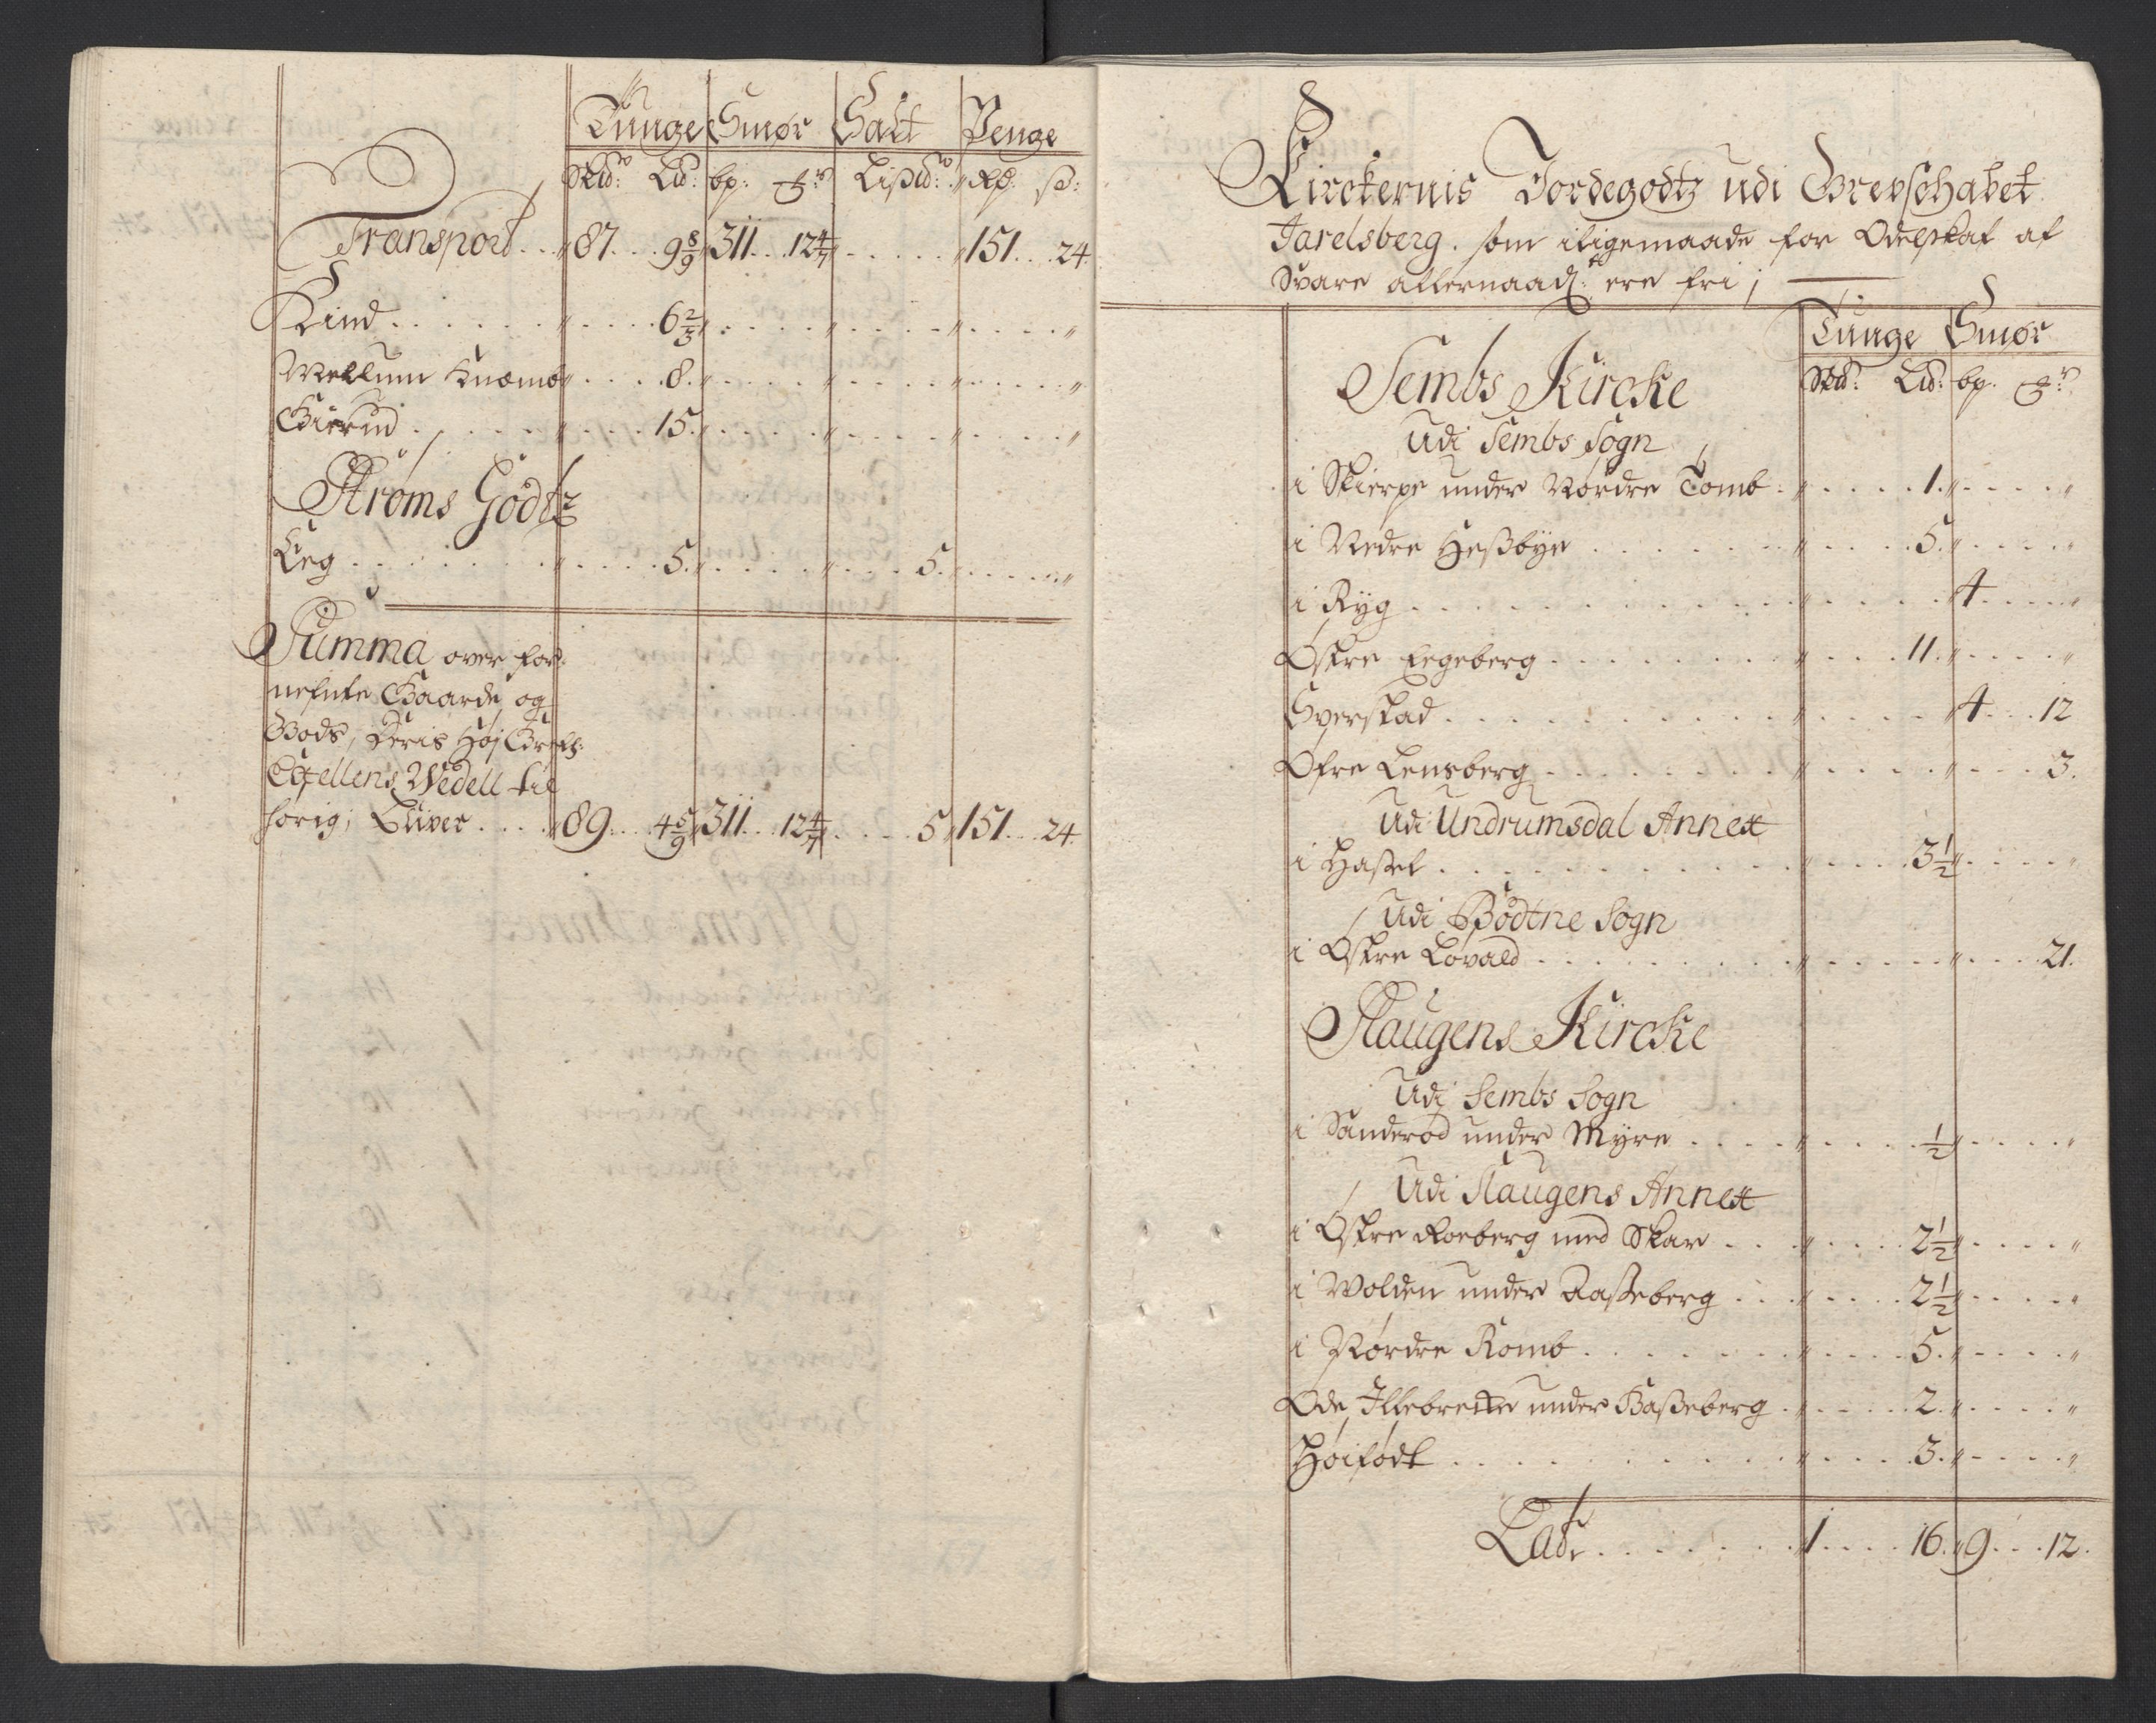 Tunge Smør Salt Penge
Skd: Lid: bp: Lispd: Rd: s:
Transport . . 87 . . 9 8/9 311 . . 12 4/7 . . . . 151 . . 24
Lind . . . . . 6 2/3
Mellum . . . . 8.
. . . . 15.
Strøms Godtz
Leg . . . . . 5. . . . . 5.
Summa over for-
nefnte Gaarde og
Gods, Deris Høj Grefl:
Excellens Wedell til
hørig; Bliver . . . . 89 . . 4 5/9 311 . . 12 4/7 . . . . 5 151 . . 24.
Kirckernis Jordegodtz udi Grevschabet
Jarelsberg. som iligemaade for Odelskat at
Svare allernaad: ere fri;
Tunge Smør
Sembs Kircke
Skd: Lid: bp.
Udi Sembs Sogn
i Skierpe under Nordre Tomb . . . . 1.
i Nedre Hessbye . . . . 5.
i Ryg . . . . 4
Østre Eegeberg . . . . 11.
Sverstad . . . . 4 . . 12
Øfre Lensberg . . . . 3.
Udi Undrumsdal Annex
i Hassel . . . . 3 1/2
Udi Bodtne Sogn
i Østre Lovald . . . . 21.
Slaugens Kircke
Udi Sembs Sogn
i Sanderød under Myre . . . . 1/2
Udi Slaugens Annex
i Østre Roeberg med Skar . . . 2 1/2
i Wolden under Aasseberg . . . 2 1/2
i Nordre Romb . . . . 5.
Øde Illebrecke under Basseberg . . . . 2.
Høifødt . . . . 3.
Latr . . . . 1 . . . . 16. 9 . . . 12.